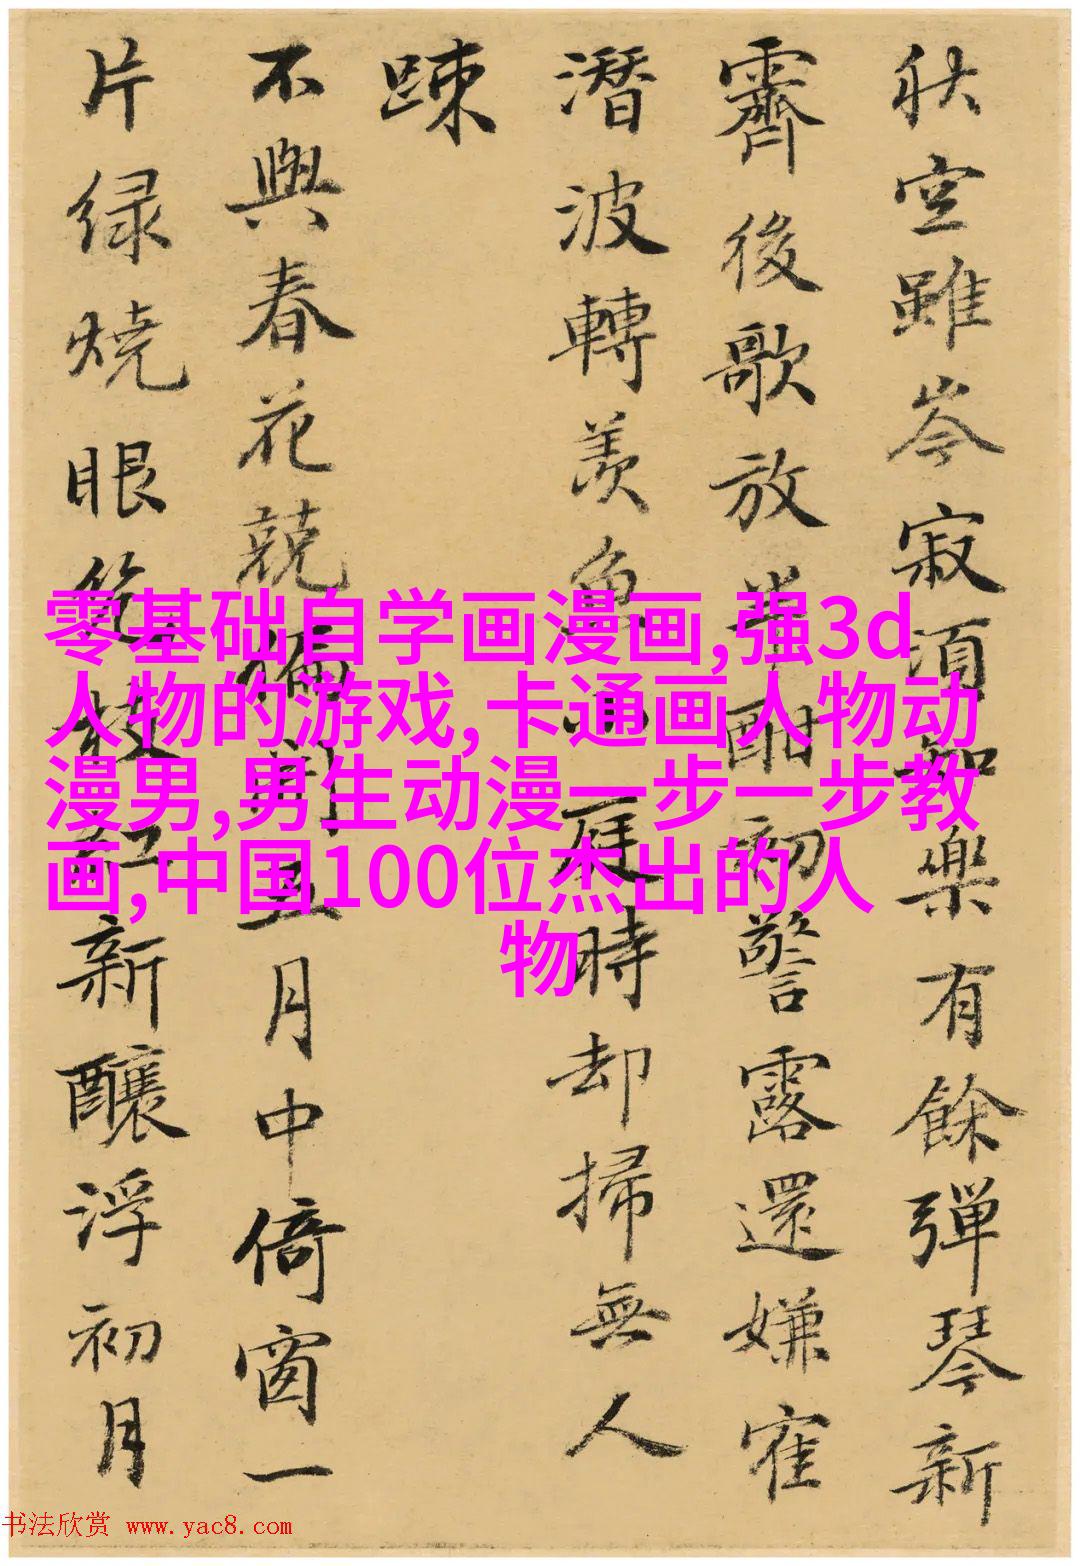 秋空雖岑寂須知樂有餘彈琴新
霽後歌放半酣初警露還嫌隺
潛波轉羨魚庭時却掃無人
踈
不與春花競偏開五月中倚窗一
片緑燒眼幾枝紅新釀浮初月
零基础自学画漫画,强3d
人物的游戏,卡通画人物动
漫男,男生动漫一步一步教
画,中国100位杰出的人
物
书法欣赏 www.yac8.com